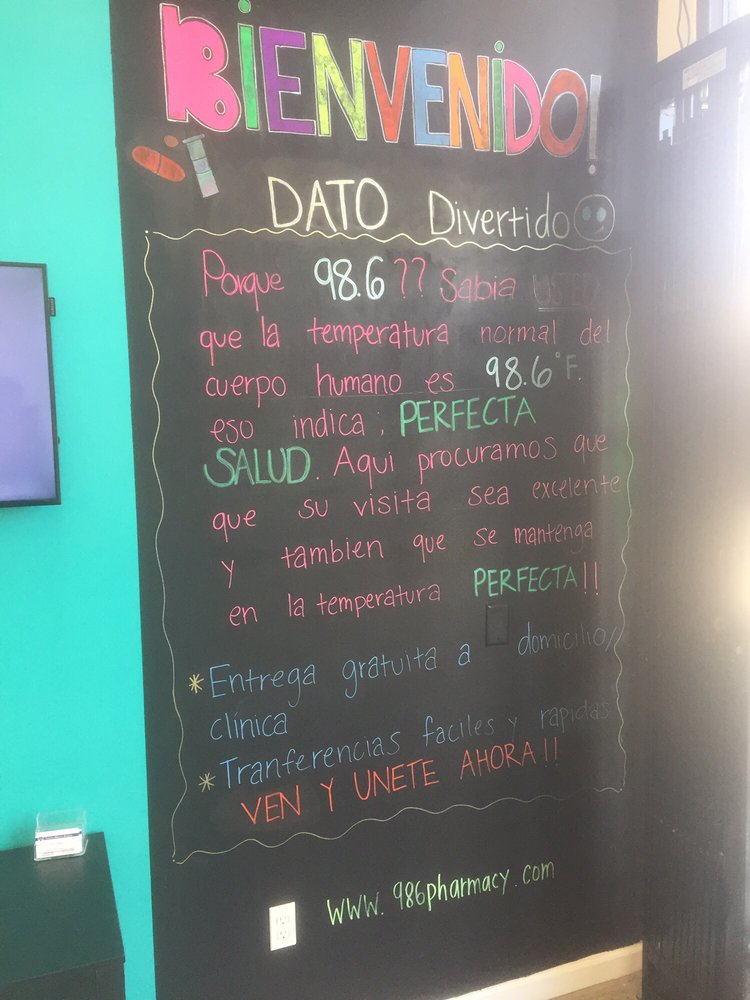 BIENVENIDO!
DATO Divertido
Porque 98.6?? Sabia USTED
que la temperatura normal del
cuerpo humano es 98.6°F.
eso indica; PERFECTA
SALUD. Aqui procuramos que
que su visita sea excelente
y tambien que se mantenga
en la temperatura PERFECTA!!
*Entrega gratuita a domicilio//
clínica
*Tranferencias faciles y rapidas
VEN Y UNETE AHORA!!
www.986pharmacy.com